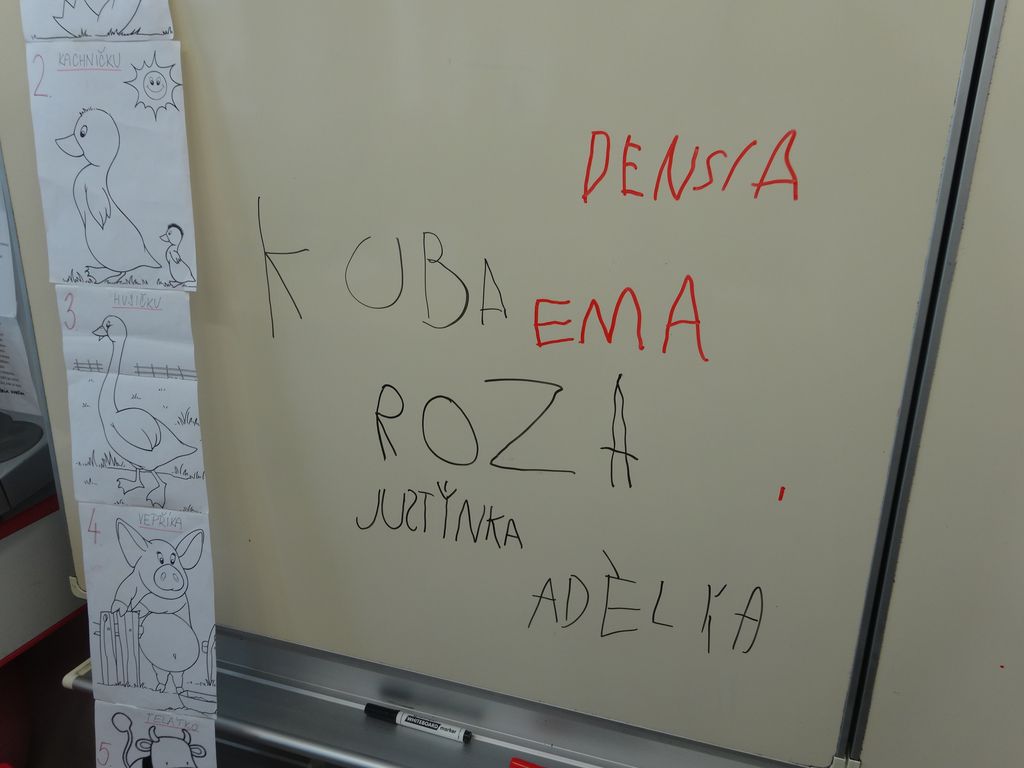 2. KACHNIČKU
3. HUSIČKU
4. VEPŘÍKA
5 TELÁTKO
DENSIA
KUBA
EMA
ROZA
JUSTÝNKA
ADÈLKA
WHITEBOARD marker